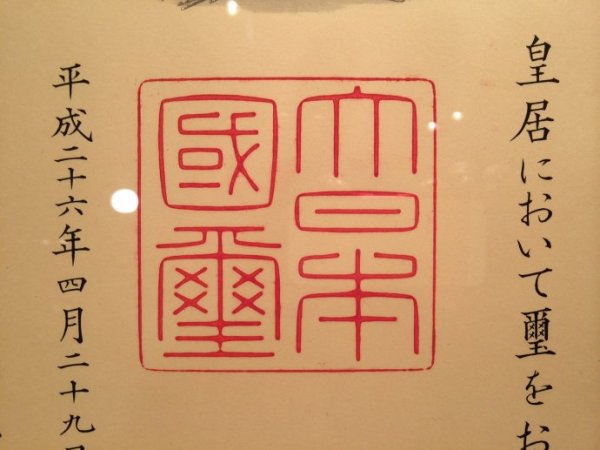 皇居において璽をお
大日本
國璽
平成二十六年四月二十九日